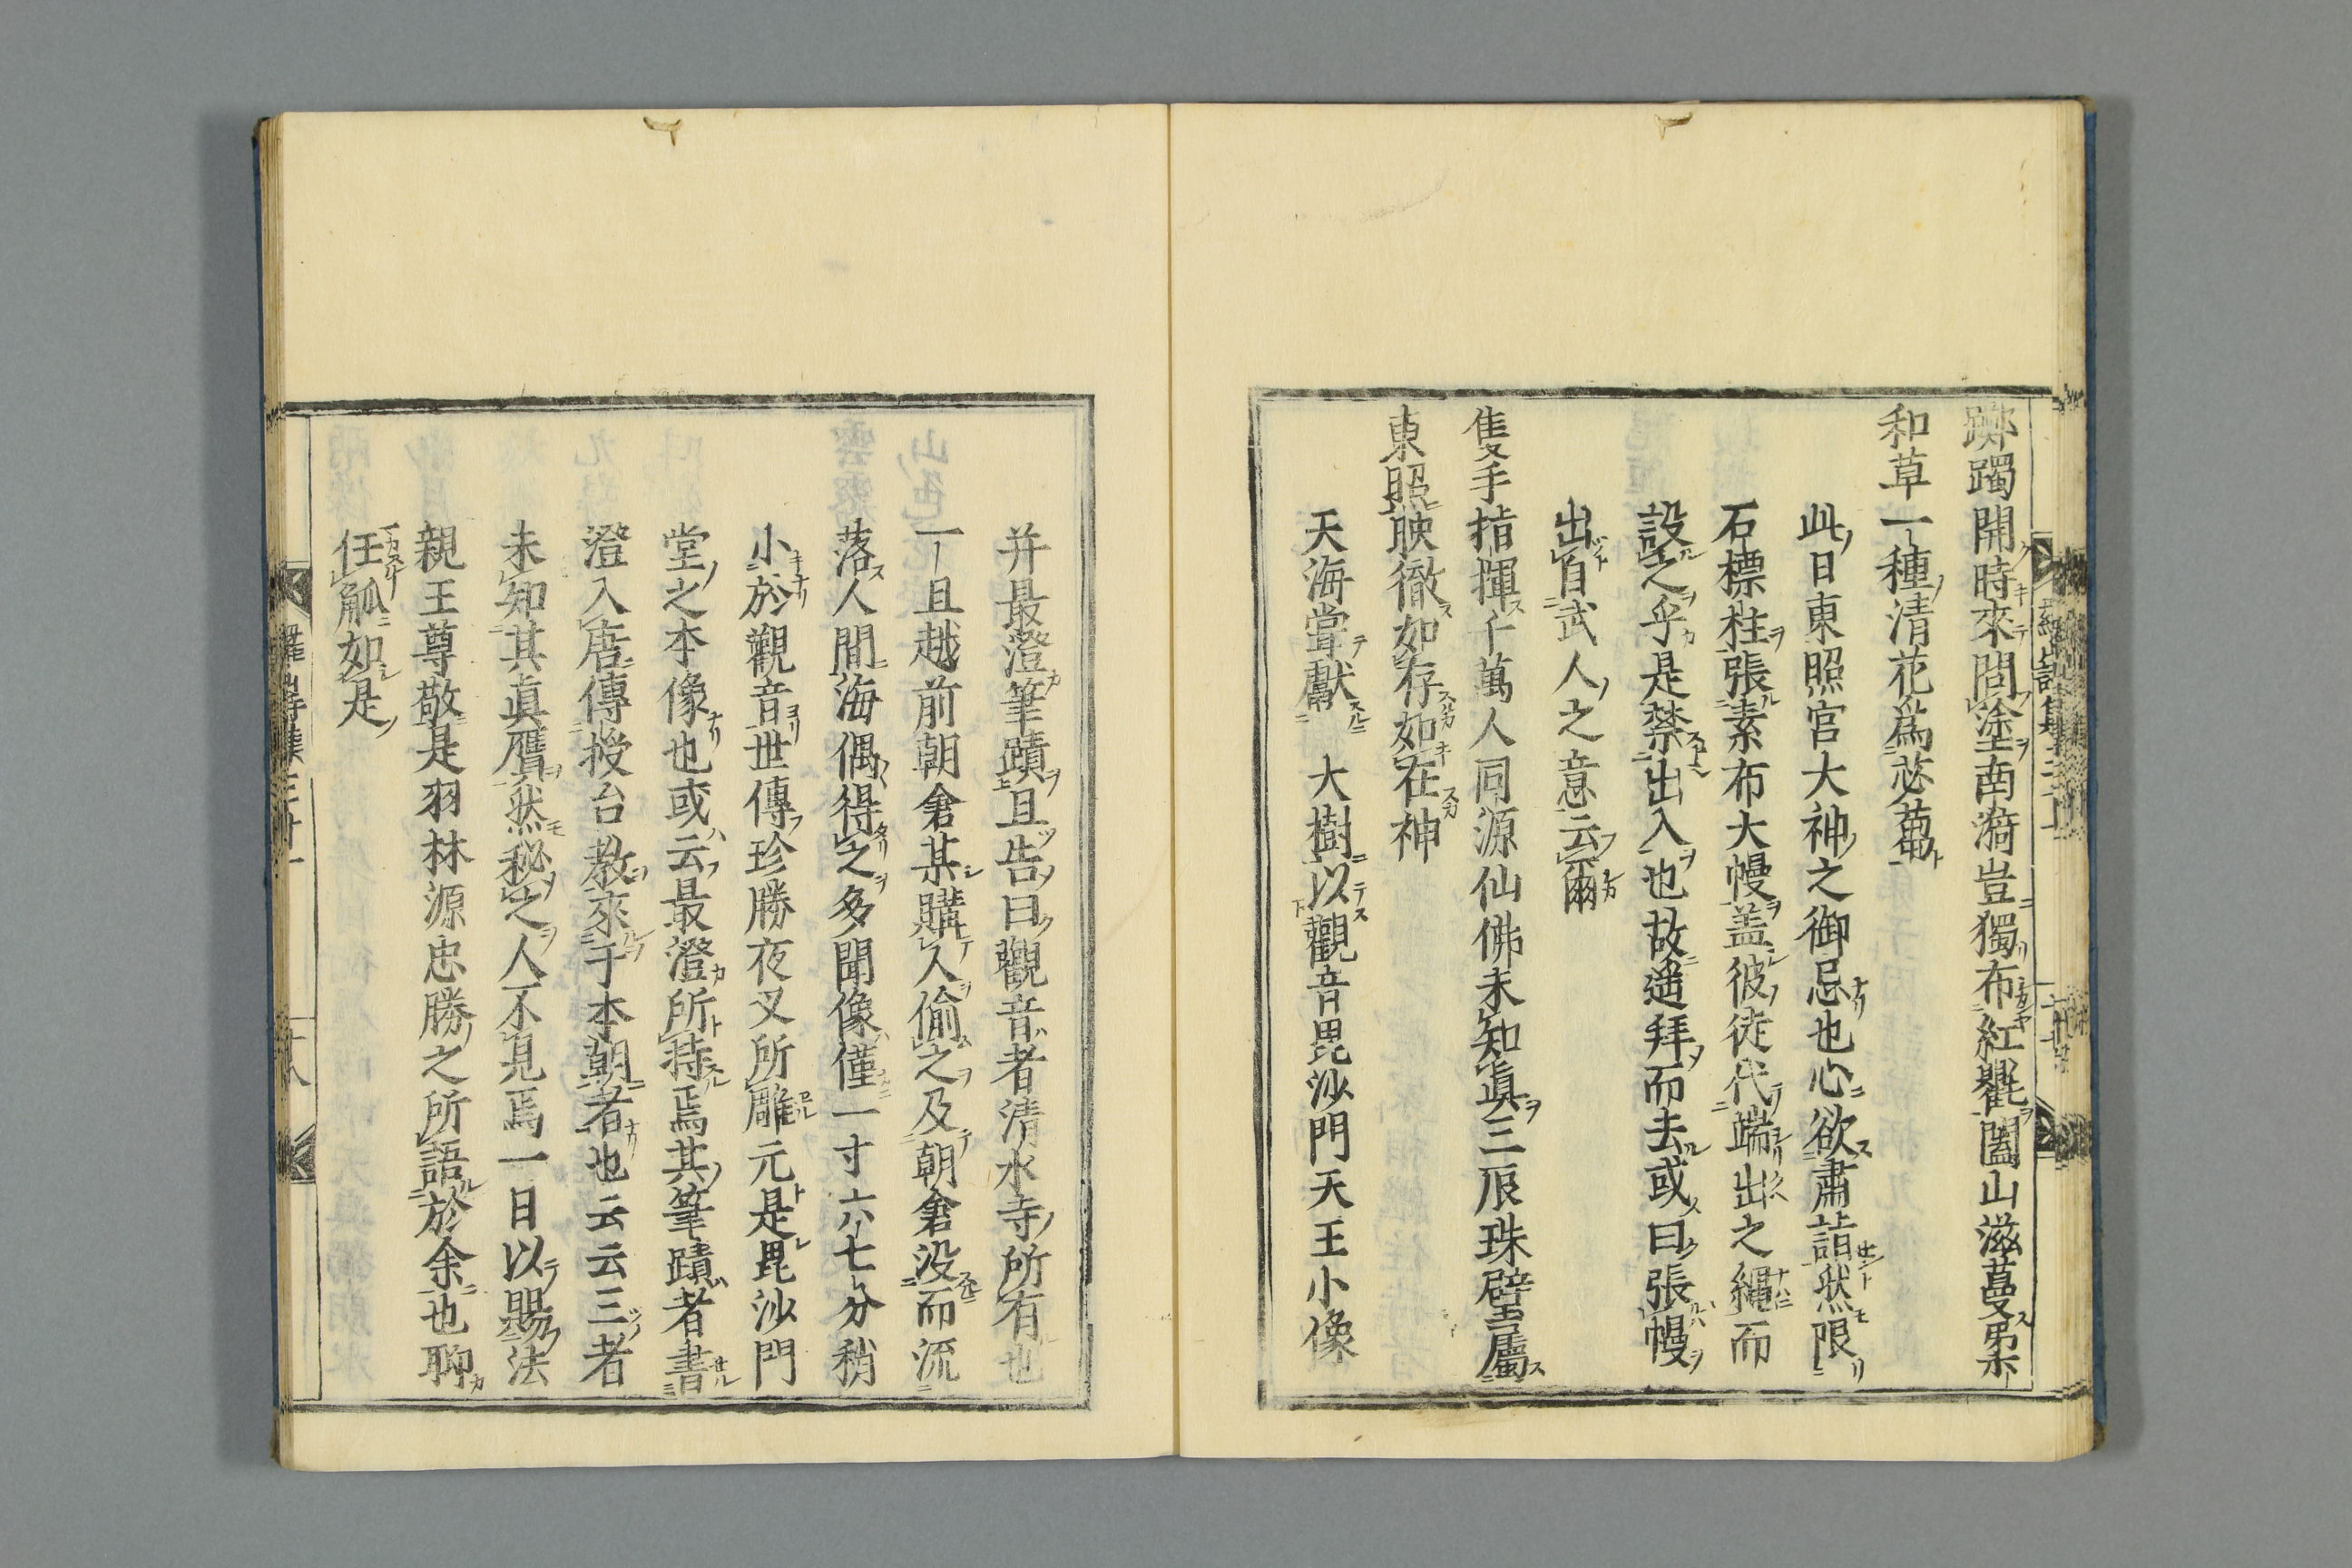 躑躅開時來問塗南簷豈獨布紅氍闔山滋蔓弟
和草一種清花爲苾蒭
此日東照宮大神之御忌也心欲肅詣然限
石標柱張素布大幔盖彼徒代端出之繩而
設之乎是禁出入也故遙拜而去或曰張幔
出自武人之意云爾
隻手指揮千萬人同源仙佛未知眞三辰珠璧屬
東照映徹如存如在神
天海嘗獻 大樹以觀音毘沙門天王小像
并最澄筆蹟且告曰觀音者清水寺所有也
一且越前朝倉某購人偷之及朝倉没而流
落人間海偶得之多聞像僅一寸六七分稍
小於觀音世傳珍勝夜叉所雕元是毘沙門
堂之本像也或云最澄所持焉其筆蹟者書
澄入唐傳授台教來于本朝者也云云三者
未知其眞贋然秘之人不見焉一日以賜法
親王尊敬是羽林源忠勝之所語於余也聊
任觚如是